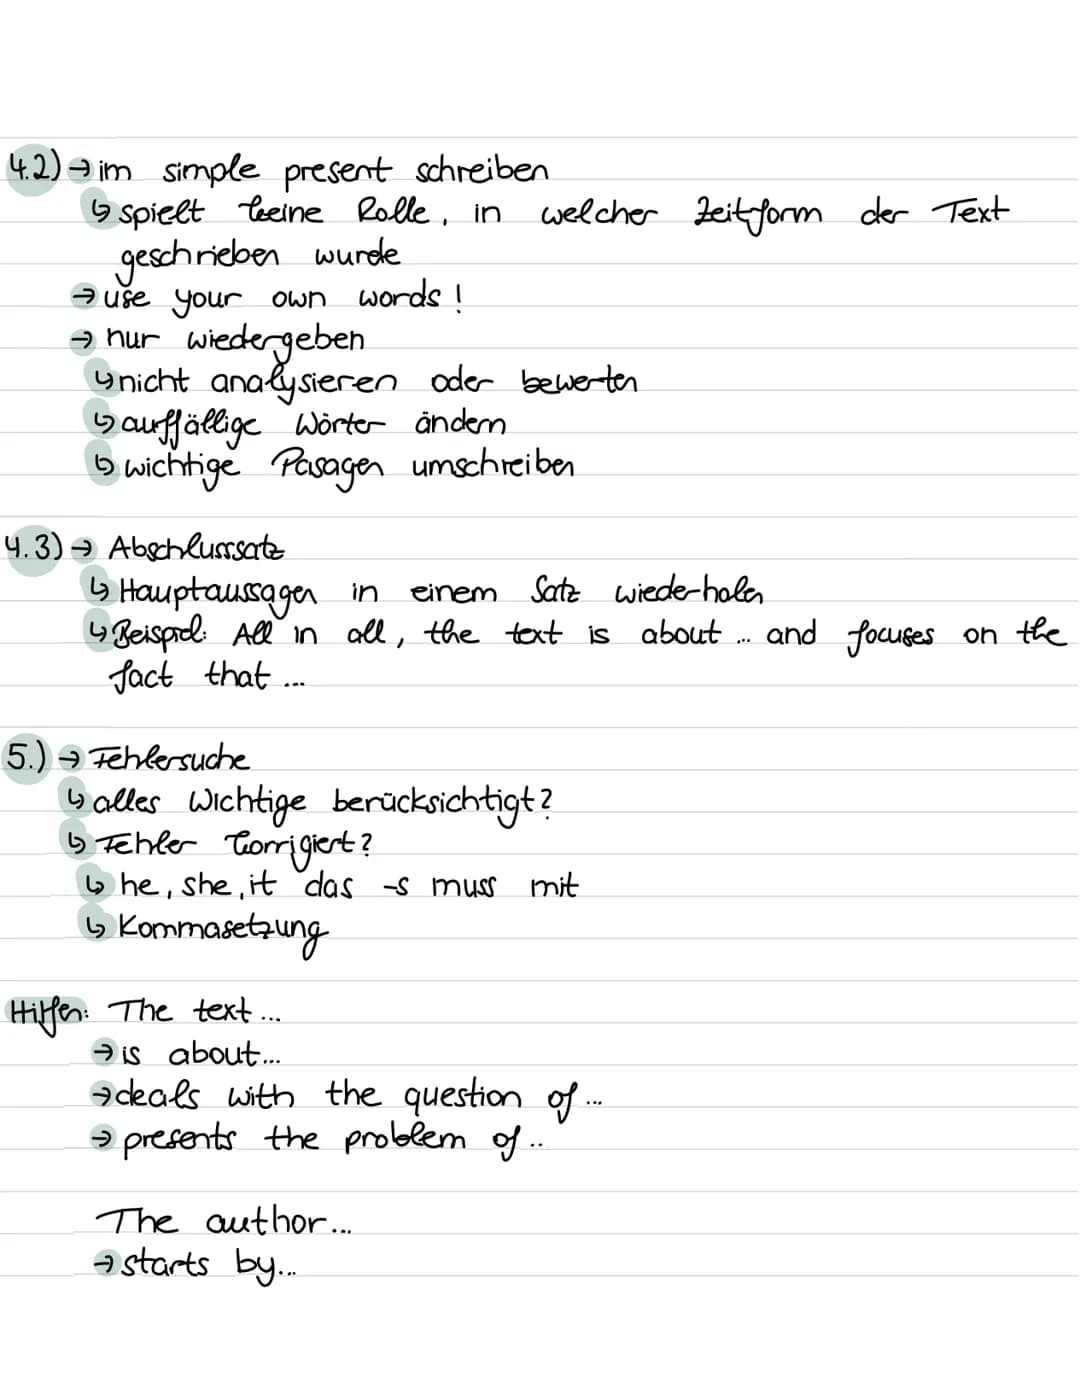 4.2) → im simple present schreiben
↳ spielt keine Rolle, in welcher Zeitform der Text
geschrieben wurde
→ use your own words!
→ nur wiedergeben
↳ nicht analysieren oder bewerten
↳ auffällige Wörter ändern
↳ wichtige Pasagen umschreiben
4.3) → Abschlusssatz
↳ Hauptaussagen in einem Satz wiederholen
↳ Beispiel: All in all, the text is about ... and focuses on the
fact that ...
5.) → Fehlersuche
↳ alles Wichtige berücksichtigt?
↳ Fehler korrigiert?
↳ he, she, it das -s muss mit
↳ Kommasetzung
Hilfen: The text ...
→ is about...
→ deals with the question of ...
→ presents the problem of ..
The author...
→ starts by...